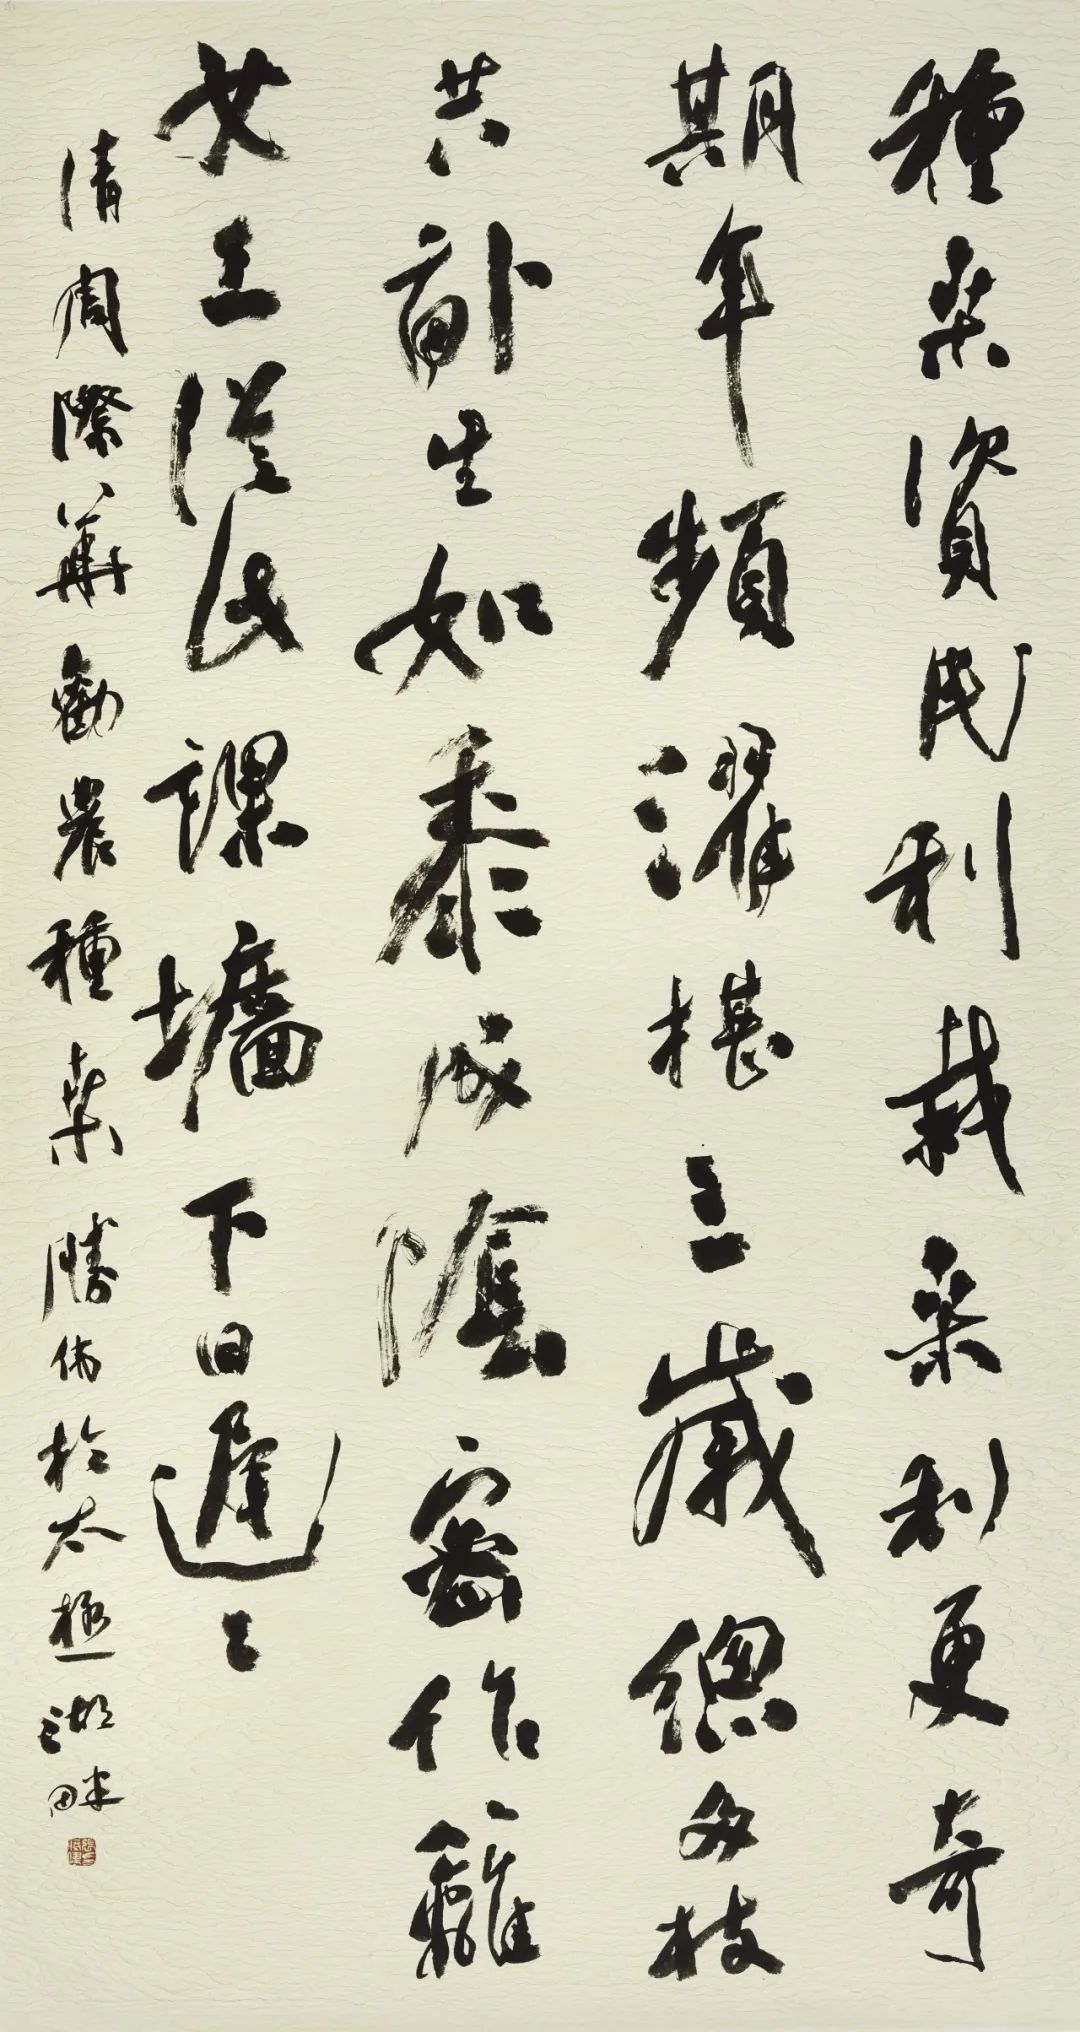 種桑資民利栽桑利更奇
期年頻濯椹三歲總多枝
共生如黍成陰密作籬
女工從此課墻下日遲〻
清周際華勸農種桑勝偉於太極湖畔